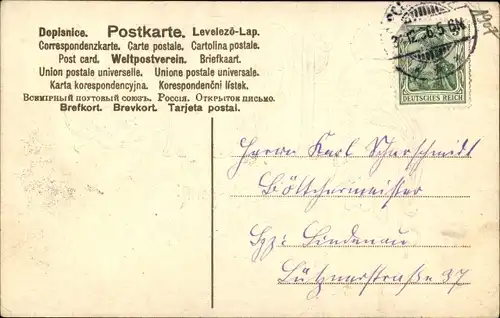 Dopisnice. Postkarte. Levelezö-Lap.
Correspondenzkarte. Carte postale. Cartolina postale.
Post card. Weltpostverein. Briefkaart.
Union postale universelle. Unione postale universale.
Karta korespondencyjna. Korespondenční lístek.
Всемірный почтовый союзъ. Россія. Открытое письмо.
Brefkort. Brevkort. Tarjeta postal.
1907
DEUTSCHES REICH
Herrn Karl Scharschmidt
Böttchermeister
Lpz: Lindenau
Lütznerstraße 37